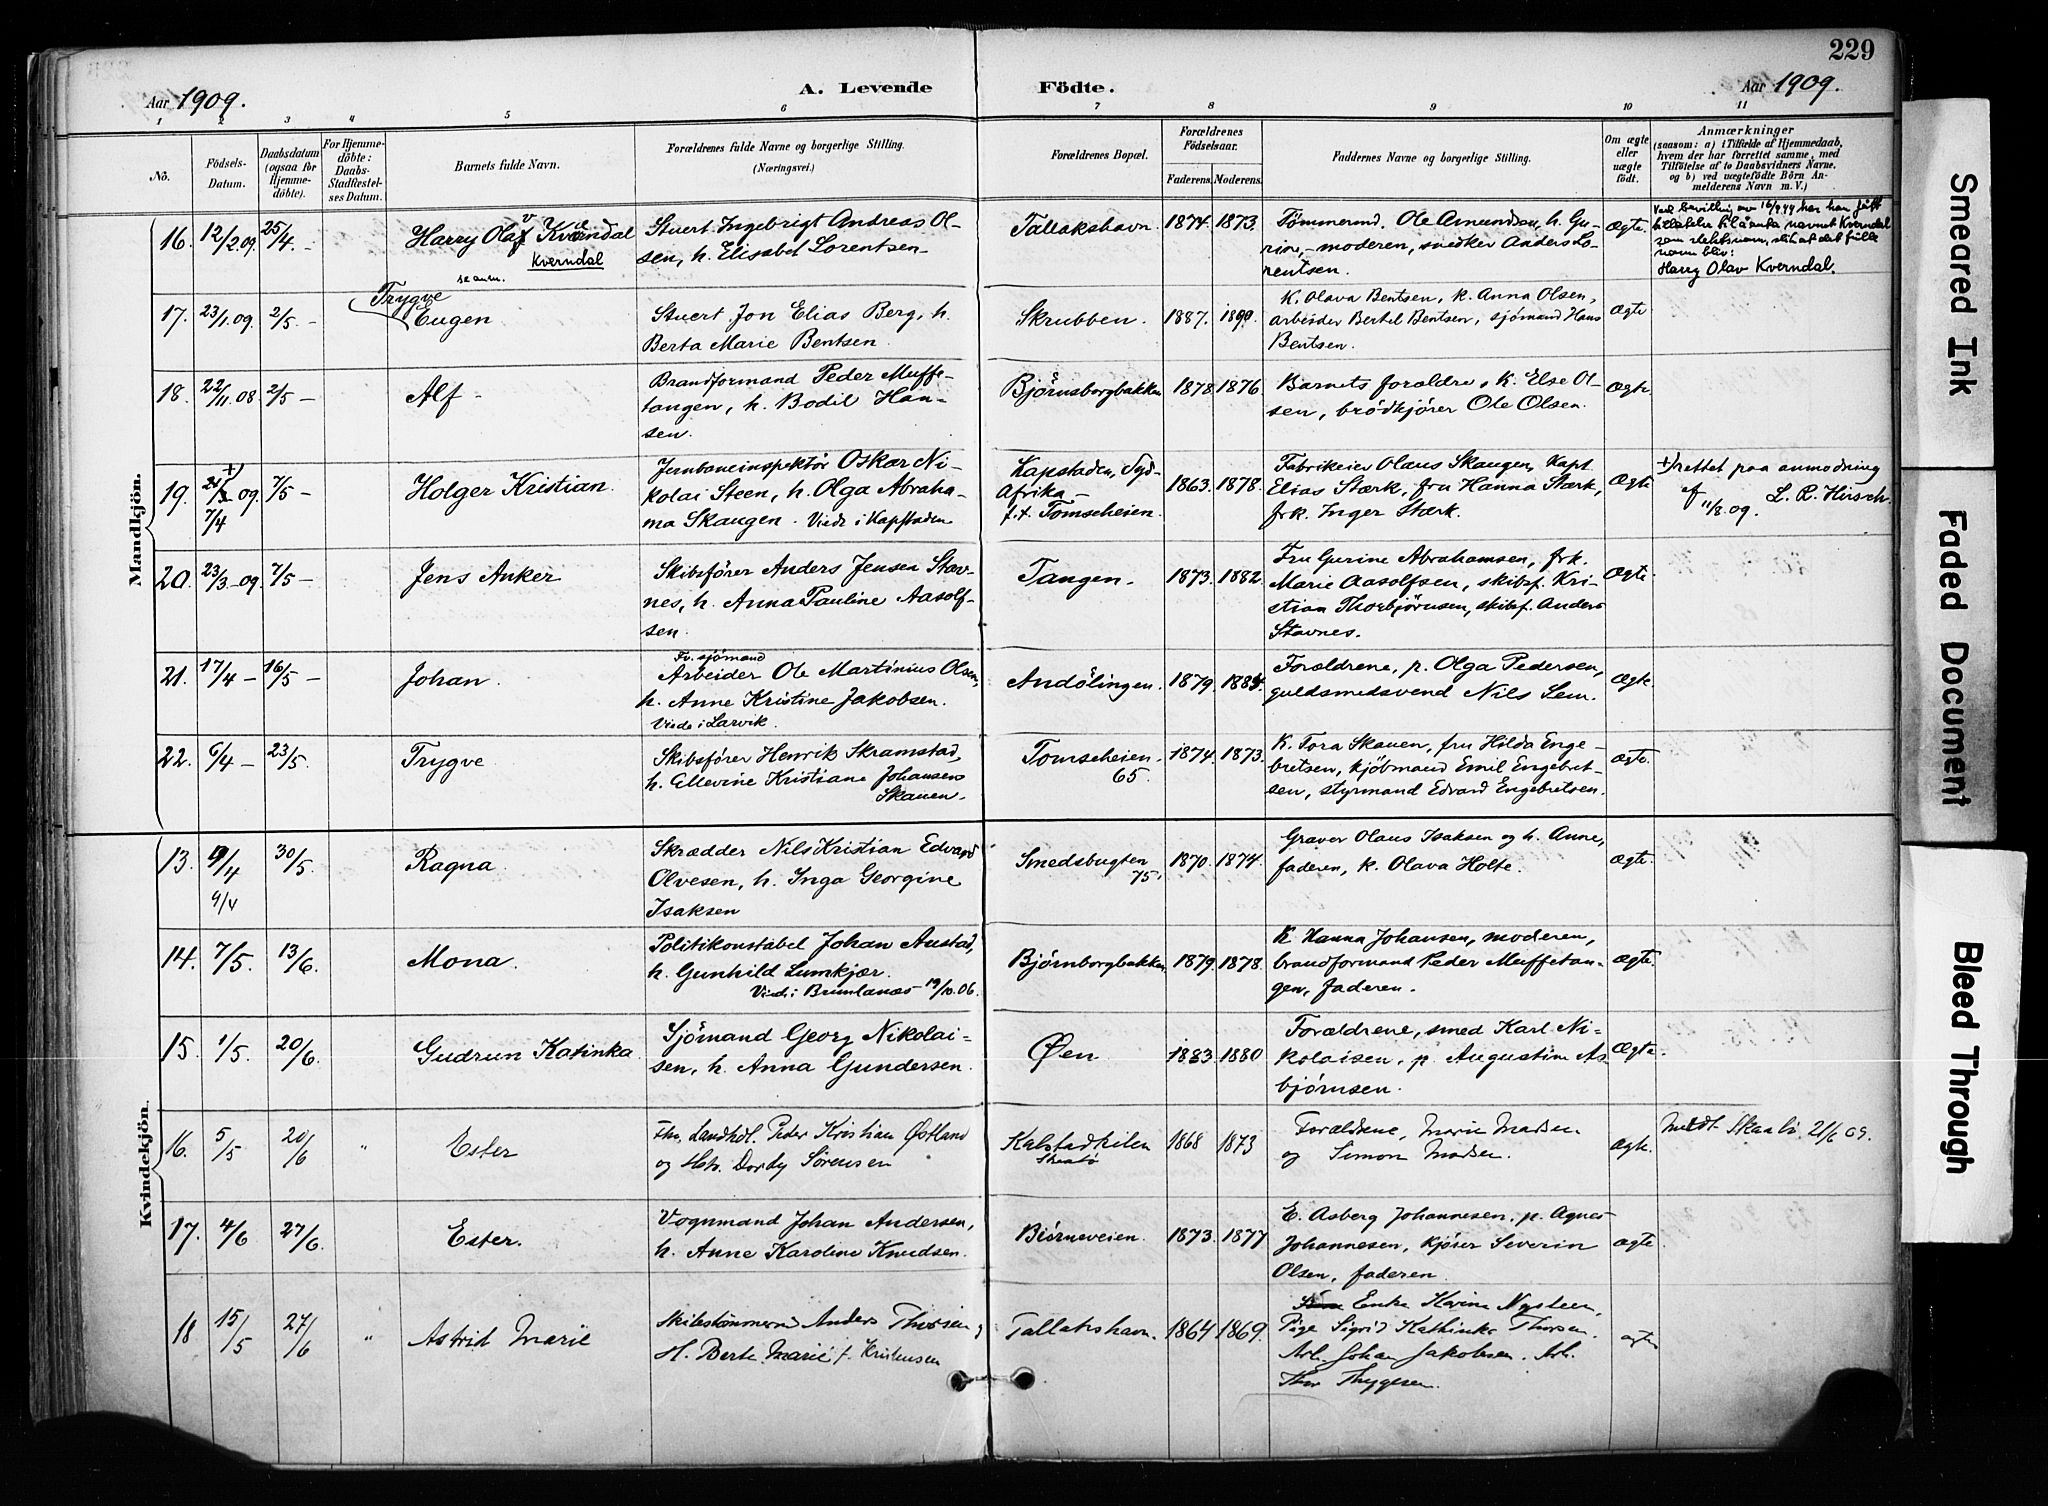 229
Aar 1909.
A. Levende Födte.
Aar 1909.
1 2 3 4 5 6 7 8 9 10 11
No.
Födsels-Datum.
Daabsdatum (ogsaa for Hjemmedöbte).
For Hjemmedöbte: Daabs-Stadfæstelses Datum.
Barnets fulde Navn.
Forældrenes fulde Navne og borgerlige Stilling.
(Næringsvei.)
Forældrenes Bopæl.
Forældrenes Födselsaar.
Faderens. Moderens.
Faddernes Navne og borgerlige Stilling.
Om ægte eller uægte födt.
Anmærkninger
(saasom: a) i Tilfælde af Hjemmedaab,
hvem der har forrettet samme, med
Tilföielse af to Daabsvidners Navne,
og b) ved uægtefödte Börn Anmelderens Navn m. V.)
Mandkjön.
16. 12/2.09. 25/4.-
Harry Olaf Kverndal
Kverndal
se anm.
Stuert Ingebrigt Andreas Ol-
sen, h. Elisabet Lorentsen-
Tallakshavn. 1874. 1873.
Tømmermd. Ole Amundsen, h. Gu-
rine, - moderen, snedker Anders Lo-
rentsen.
Ægte.
Ved bevilling av 16/9 49 har han fått
tillatelse til å anta navnet Kverndal
som slektsnavn, slik at det fulle
navn blir:
Harry Olav Kverndal.
17. 23/1.09. 2/5.-
Trygve
Eugen
Stuert Jon Elias Berg, h.
Berta Marie Bentsen.
Skrubben. 1887. 1890.
K. Olava Bentsen, k. Anna Olsen,
arbeider Bertel Bentsen, sjømand Hans
Bentsen.
Ægte
18. 22/11.08 2/5-
Alf -
Brandformand Peder Muffe-
tangen, h. Bodil Han-
sen.
Bjørnsborgbakken 1878. 1876
Barnets foraldre, k. Else Ol-
sen, brödkjører Ole Olsen.
Ægte.
19. +) 09. 7/4 7/5-
Holger Kristian.
Jernbaneinspektör Oskar Ni-
kolai Steen, h. Olga Abraha-
ma Skaugen. Viede i Kapstaden
Kapstaden, Syd-
Afrika -
f.t. Tomseheien.
1863. 1878.
Fabrikeier Olaus Skaugen, Kapt.
Elias Stærk, fru Hanna Stærk,
frk. Inger Stærk.
Ægte
+) rettet paa anmodning
af 11/8.09. L. R. Hirsch.
20. 23/3-09. 7/5-
Jens Anker
Skibsfører Anders Jensen Stav-
nes, h. Anna Pauline Aasolf-
sen.
Tangen. 1873. 1882.
Fru Gurine Abrahamsen, frk.
Marie Aasolfsen, skibsf. Kri-
stian Thorbjørnsen, skibsf. Anders
Stavnes.
Ægte.
21. 17/4- 16/5-
Johan.
Fv. sjömand
Arbeider Ole Martinius Olsen,
h. Anne Kristine Jakobsen.
Viede i Larvik.
Andölingen. 1879. 1884.
Forældrene, p. Olga Pedersen,
guldsmedsvend Nils Lem.
Ægte.
22. 6/4- 23/5.
Trygve
Skibsfører Henrik Skramstad,
h. Ellevine Kristiane Johansen
Skauen.
Tomseheien.
65.
1874. 1873.
K. Tora Skauen, fru Hilda Enge-
bretsen, kjöbmand Emil Engebret-
sen, styrmand Edvard Engebretsen.
ægte.
Kvindekjön.
13. 9/4 9/4 30/5.
Ragna.
Skrædder Nils Kristian Edvard
Olvesen, h. Inga Georgine
Isaksen
Smedsbugten
75.
1870. 1874.
Graver Olaus Isaksen og h. Anne,
faderen, k. Olava Holte.
Ægte.
14. 7/5. 13/6.
Mona.
Politikonstabel Johan Austad,
h. Gunhild Lumkjær.
Viede i Brunlanæs 19/10.06.
Bjørnborgbakken. 1879. 1878.
K. Hanna Johansen, moderen,
brandformand Peder Muffetan-
gen, faderen.
Ægte.
15. 1/5. 20/6.
Gudrun Katinka.
Sjömand Georg Nikolai-
sen, h. Anna Gundersen.
Øen 1883. 1880.
Forældrene, smed Karl Ni-
kolaisen, p. Augustine As-
bjørnsen.
Ægte.
16. 5/5 20/6 "
Ester
Fhv. Landhdl. Peder Kristian Østland
og Hstr. Dordy Sørensen
Kalstadkilen
Skaatø
1868 1873
Forældrene, Marie Madsen
og Simon Madsen.
ægte.
Meldt Skaatø 21/6 09.
17. 4/6 27/6.
Ester.
Vognmand Johan Andersen,
h. Anne Karoline Knudsen.
Bjørneveien. 1873. 1877
E. Asberg Johannesen. p. Agnes
Johannesen, kjører Severin
Olsen, faderen.
Ægte
18 15/5 27/6 "
Astrid Marie
Skibstömmermd Anders Thorsen og
H. Berte Marie f. Kristensen
Tallakshavn. 1864 1869.
Enke Karine Nysteen,
Pige Sigrid Kathinka Thorsen.
Arb. Johan Jakobsen. Arb.
Thor Thygesen.
ægte
Smeared Ink
Faded Document
Bleed Through